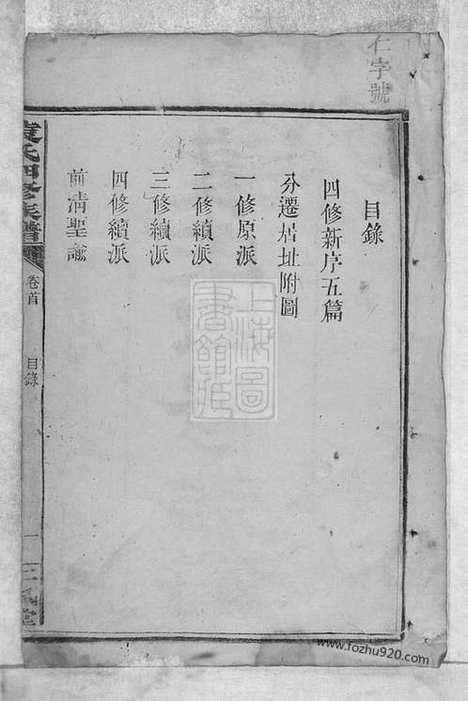 仁字號
目錄
四修新序五篇
分遷居址附圖
一修原派
二修續派
三修續派
四修續派
前清聖諭
袁氏四修族譜
卷首
目錄
一
上海圖書館藏
www.fozhu920.com